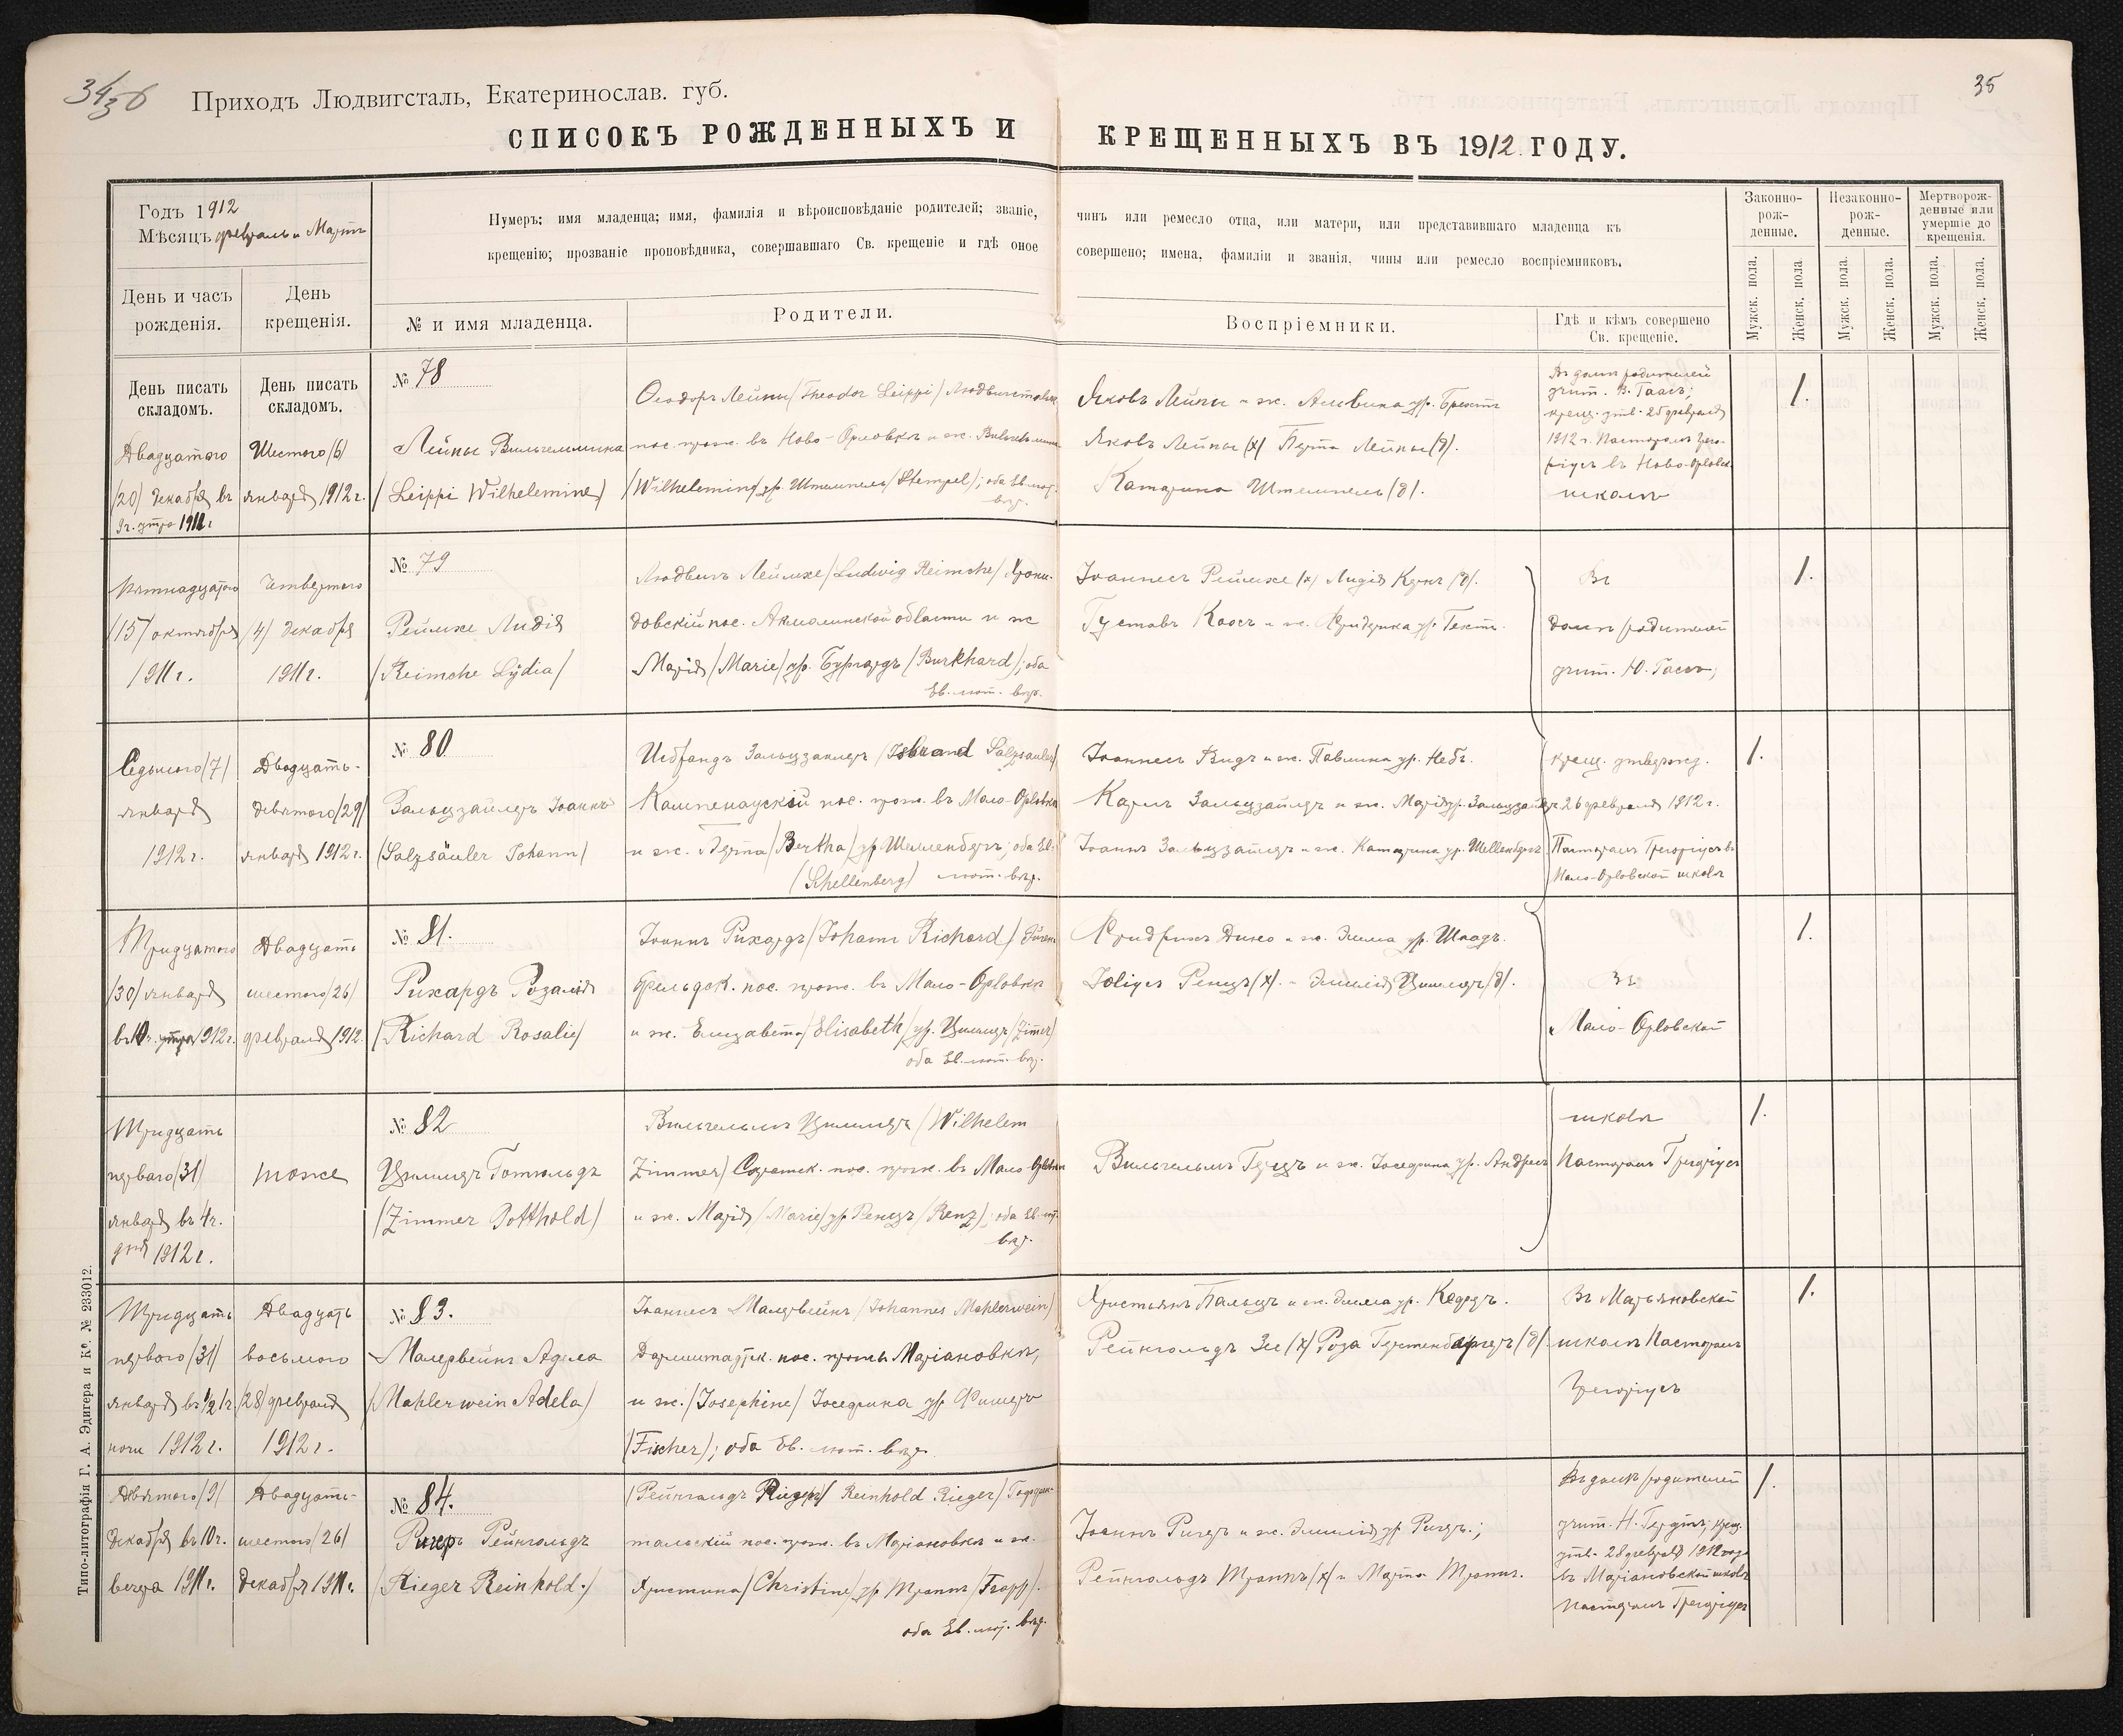 34/36
35
Приходъ Людвигсталь, Екатеринослав. губ.
СПИСОКЪ РОЖДЕННЫХЪ И КРЕЩЕННЫХЪ ВЪ 1912 ГОДУ.
Годъ 1912
Мѣсяцъ февраль и Мартъ
Нумеръ; имя младенца; имя, фамилія и вѣроисповѣданіе родителей; званіе, чинъ или ремесло отца, или матери, или представившаго младенца къ
крещенію; прозваніе проповѣдника, совершавшаго Св. крещеніе и гдѣ оное совершено; имена, фамиліи и званія, чины или ремесло воспріемниковъ.
Законно-
рож-
денные.
Незаконно-
рож-
денные.
Мертворож-
денные или
умершіе до
крещенія.
День и часъ
рожденія.
День
крещенія.
№ и имя младенца.
Родители.
Воспріемники.
Гдѣ и кѣмъ совершено
Св. крещеніе.
Мужск. пола.
Женск. пола.
Мужск. пола.
Женск. пола.
Мужск. пола.
Женск. пола.
День писать
складомъ.
День писать
складомъ.
Двадцатаго
/20/ декабря въ
9 ч. утра 1911 г
Шестого /6/
января 1912 г.
№ 78
Лейпы Вильгельмина
/Leippi Wilhelemine/
Ѳеодоръ Лейпы /Theodor Leippi/
пос. прож. въ Ново-Орловкѣ и ж. Вильгельмина
/Wilhelemine/ ур. Штемпель /Stempel/; оба Ев. лют.
вѣр.
Яковъ Лейпы и ж. Альвина ур.
Яковъ Лейпы (х) Берта Лейпы (д).
Катарина Штемпель (д).
Въ домѣ родителей
учит. В. Гаасъ;
крещ. утв. 25 февраля
1912 г. Пасторомъ Грего-
ріусъ въ Ново-Орловск.
школѣ
1.
Пятнадцатаго
/15/ октября
1911 г.
Четвертаго
/4/ декабря
1911 г.
№ 79
Реймхе Лидія
/Reimche Lydia/
Людвигъ Реймхе /Ludwig Reimche/
довскій пос. Акмолинской области и ж
Марія /Marie/ ур. Бургардъ /Burkhard/; оба
Ев. лют. вѣр.
Іоаннесъ Реймхе (х) Лидія Кунъ (д).
Густавъ Коосъ и ж. Фридерика ур.
Въ
домѣ родителей
учит. Ю. Гаасъ;
1.
Седьмого /7/
января
1912 г.
Двадцать-
девятого /29/
января 1912 г.
№ 80
Зальцзайлеръ Іоаннъ
/Salzsäuler Johann/
Исбрандъ Зальцзайлеръ /Isbrand Salzsäuler/
Кампенаускій пос. прож. въ Мало-Орловкѣ
и ж. Берта /Bertha/ ур. Шелленбергъ; оба Ев.
(Schellenberg) лют. вѣр.
Іоаннесъ Видъ и ж. Павлина ур. Небъ.
Карлъ Зальцзайлеръ и ж. Марія ур. Зальцзайлеръ
Іоаннъ Зальцзайлеръ и ж. Катарина ур. Шелленбергъ
крещ. утвержд.
26 февраля 1912 г.
Пасторомъ Грегоріусъ въ
Мало-Орловской школѣ
1.
Тридцатаго
/30/ января
въ 10 ч. утра 1912 г.
Двадцать
шестого /26/
февраля 1912.
№ 81.
Рихардъ Розалія
/Richard Rosalie/
Іоаннъ Рихардъ /Johann Richard/
фельдск. пос. прож. въ Мало-Орловкѣ
и ж. Елизавета /Elisabeth/ ур. Циммеръ /Zimer/
оба Ев. лют. вѣр.
Фридрихъ Дико и ж. Эмма ур. Шаадъ.
Юліусъ Ренцъ (х). - Эмилія Циммеръ (д).
Въ
Мало-Орловской
1.
Тридцать
перваго /31/
января въ 4 ч.
дня 1912 г.
тоже
№ 82
Циммеръ Готгольдъ
/Zimmer Gotthold/
Вильгельмъ Циммеръ /Wilhelem
Zimmer/ пос. прож. въ Мало-Орловкѣ
и ж. Марія /Marie/ ур. Ренцъ /Renz/; оба Ев. лют.
вѣр.
Вильгельмъ Герцъ и ж. Іосефина ур. Андресъ
школѣ
Пасторомъ Грегоріусъ
1.
Тридцать
перваго /31/
января въ ½ 1 ч.
ночи 1912 г.
Двадцать
восьмого
/28/ февраля
1912 г.
№ 83.
Малервейнъ Адела
/Mahlerwein Adela/
Іоаннесъ Малервейнъ /Johannes Mahlerwein/
Дармштадтск. пос. прож. въ Маріановкѣ,
и ж. /Josephine/ Іосефина ур. Фишеръ
/Fischer/; оба Ев. лют. вѣр.
Христьянъ Пальцъ и ж. Эмма ур. Кедеръ.
Рейнгольдъ Зее (х) Роза Гертенбергеръ (д).
Въ Марьяновской
школѣ Пасторомъ
Грегоріусъ
1.
Девятого /9/
декабря въ 10 ч.
вечера 1911 г.
Двадцать-
шестого /26/
декабря 1911 г.
№ 84.
Ригеръ Рейнгольдъ
/Rieger Reinhold./
/Рейнгольдъ Ригеръ/ Reinhold Rieger/
тальскій пос. прож. въ Маріановкѣ и ж.
Христина /Christine/ ур Траппъ /Trapp/.
оба Ев. лют. вѣр.
Іоаннъ Ригеръ и ж. Эмилія ур. Ригеръ.;
Рейнгольдъ Траппъ (х) и Марта Траппъ.
Въ домѣ родителей
учит. Н. крещ.
утв. 28 февраля 1912 года
въ Маріановской школѣ
Пасторомъ Грегоріусъ
1.
Типо-литографія Г. А. Эдигера и Ко. № 233012.